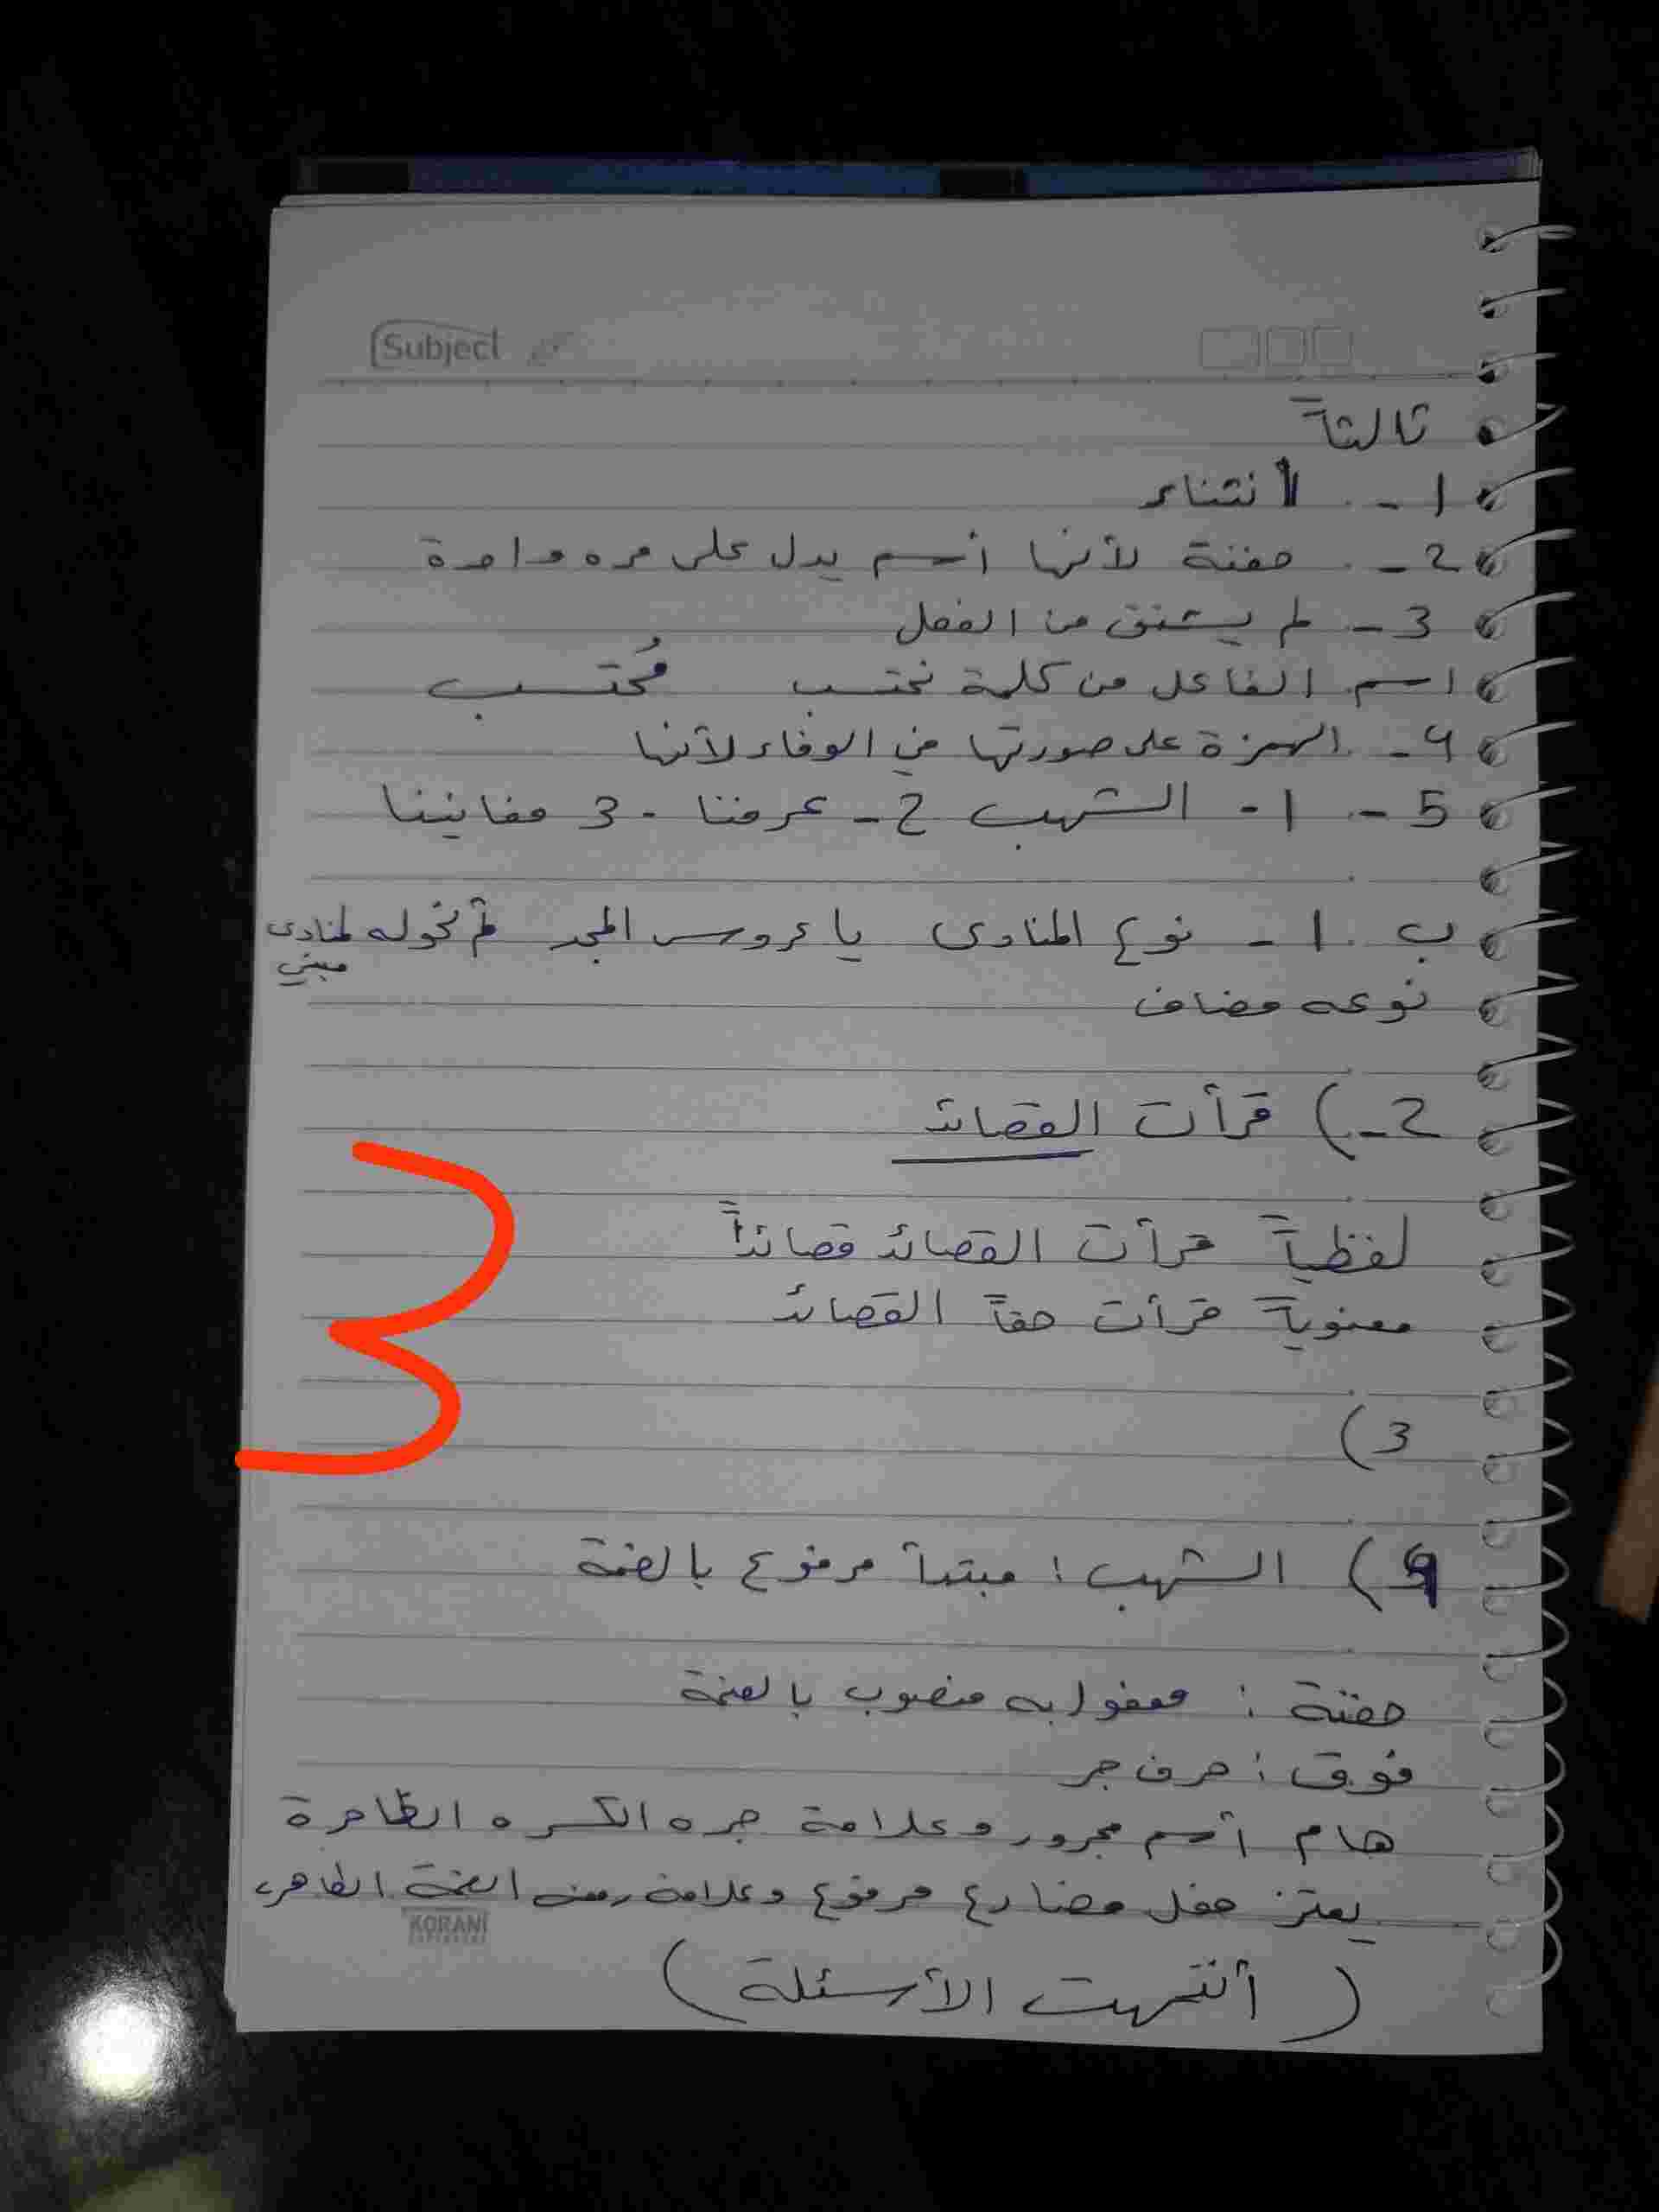 Subject
ثالثاً
1 - انتشاء
2 - حفنة لأنها أسم يدل على مره واحدة
3 - لم يشتق من الفعل
اسم الفاعل من كلمة نحتسب مُحتسب
4 - الهمزة على صورتها في الوفاء لأنها
5 - 1 - الشهب 2 - عرفنا - 3 مغانينا
ب 1 - نوع المنادى يا عروس المجد ثم نحوله لمنادى
مبني
نوعه مضاف
2 - ) قرأت القصائد
لفظياً قرأت القصائد قصائداً
معنوياً قرأت حقاً القصائد
3
3 )
4 ) الشهب : مبتدأ مرفوع بالضمة
حفنة : مفعول به منصوب بالضمة
فوق : حرف جر
هام أسم مجرور وعلامة جره الكسره الظاهرة
يعتز فعل مضارع مرفوع وعلامة رفعه الضمة الظاهره
KORANI
( أنتهت الأسئلة )